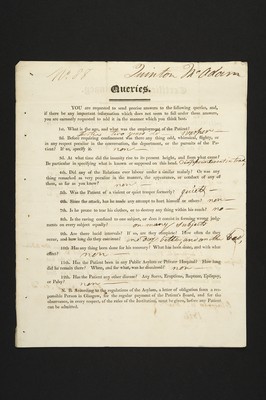 No 88
Quintin McAdam
Queries.
YOU are requested to send precise answers to the following queries, and,
if there be any important information which does not seem to fall under these answers,
you are earnestly requested to add it in the manner which you think best.
1st. What is the age, and what was the employment of the Patient?
2d. Before requiring confinement was there any thing odd, whimsical, flighty, or
in any respect peculiar in the conversation, the deportment, or the pursuits of the Pa-
tient? If so, specify it. non
3d. At what time did the insanity rise to its present height, and from what cause?
Be particular in specifying what is known or supposed on this head.
4th. Did any of the Relations ever labour under a similar malady? Or was any
thing remarked as very peculiar in the manner, the appearance, or conduct of any of
them, as far as you know? non
5th. Was the Patient of a violent or quiet temper formerly? quiets
6th. Since the attack, has he made any attempt to hurt himself or others? non
7th. Is he prone to tear his clothes, or to destroy any thing within his reach? no
8th. Is the raving confined to one subject, or does it consist in forming wrong judg-
ments on every subject equally? on many subjects
9th. Are there lucid intervals? If so, are they complete? How often do they
occur, and how long do they continue?
10th. Has any thing been done for his recovery? What has been done, and with what
effect? non
11th. Has the Patient been in any Public Asylum or Private Hospital? How long
did he remain there? When, and for what, was he dismissed? non
12th. Has the Patient any other disease? Any Sores, Eruptions, Rupture, Epilepsy,
or Palsy? non
N. B. According to the regulations of the Asylum, a letter of obligation from a re-
sponsible Person in Glasgow, for the regular payment of the Patient's Board, and for the
observance, in every respect, of the rules of the Institution, must be given, before any Patient
can be admitted.